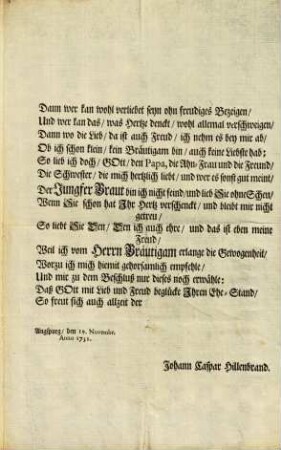 Dann wer kan wohl verliebet seyn ohn freudiges Bezeigen/
Und wer kan das/ was Hertze denckt/ wohl allemal verschweigen/
Dann wo die Lieb/ da ist auch Freud/ ich nehm es bey mir ab/
Ob ich schon klein/ kein Bräutigam bin/ auch keine Liebste hab:
So lieb ich doch/ GOtt/ den Papa, die Ahn-Frau und die Freund/
Die Schwester/ die mich hertzlich liebt/ und wer es sonst gut meint/
Der Jungfer Braut bin ich nicht feind/ und lieb Sie ohne Scheu/
Wenn Sie schon hat Ihr Hertz verschenckt/ und bleibt mir nicht
getreu/
So liebt Sie Den/ Den ich auch ehre/ und das ist eben meine
Freud/
Weil ich vom Herrn Bräutigam erlange die Gewogenheit/
Worzu ich mich hiemit gehorsamlich empfehle/
Und mir zu dem Beschluß nur dieses noch erwähle:
Daß GOtt mit Lieb und Freud beglückt Ihren Ehe-Stand/
So freut sich auch allzeit der
Augspurg/ den 19. Novembr.
Anno 1731.
Johann Caspar Hillenbrand.